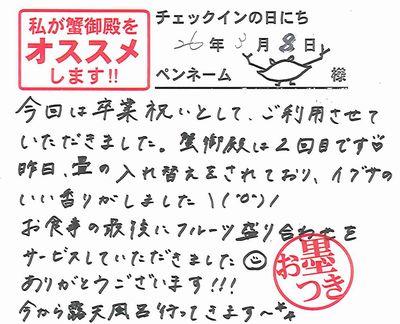 私が蟹御殿を
オススメ
します!!
チェックインの日にち
26年3月8日
ペンネーム 様
今回は卒業祝いとして、ご利用させて
いただきました。蟹御殿は2回目です♡
昨日、畳の入れ替えをされており、イグサの
いい香りがしました \(°0°)/
お食事の最後にフルーツ盛り合わせを
サービスしていただきました☺
ありがとうございます!!!
今から露天風呂行ってきます〜**
お墨つき